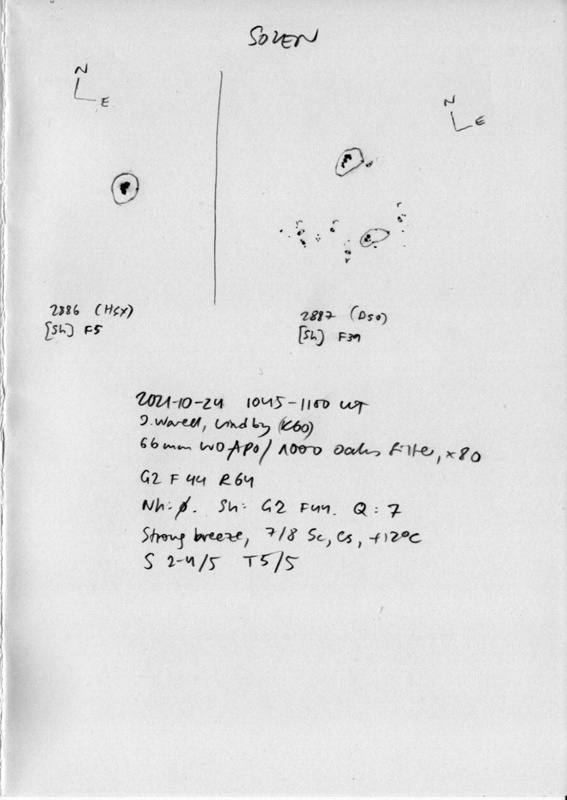 SOLEN
N
E
N
E
2886 (HSX)
[Sh] F5
2887 (DSO)
[Sh] F39
2021-10-24 1045-1100 UT
J. Warell, Lindby (K60)
66 mm WO APO / 1000 Oaks filter, x80
G2 F44 R64
Nh: ø. Sh: G2 F44. Q: 7
Strong breeze, 7/8 Sc, Cs, +12°C
S 2-4/5 T5/5